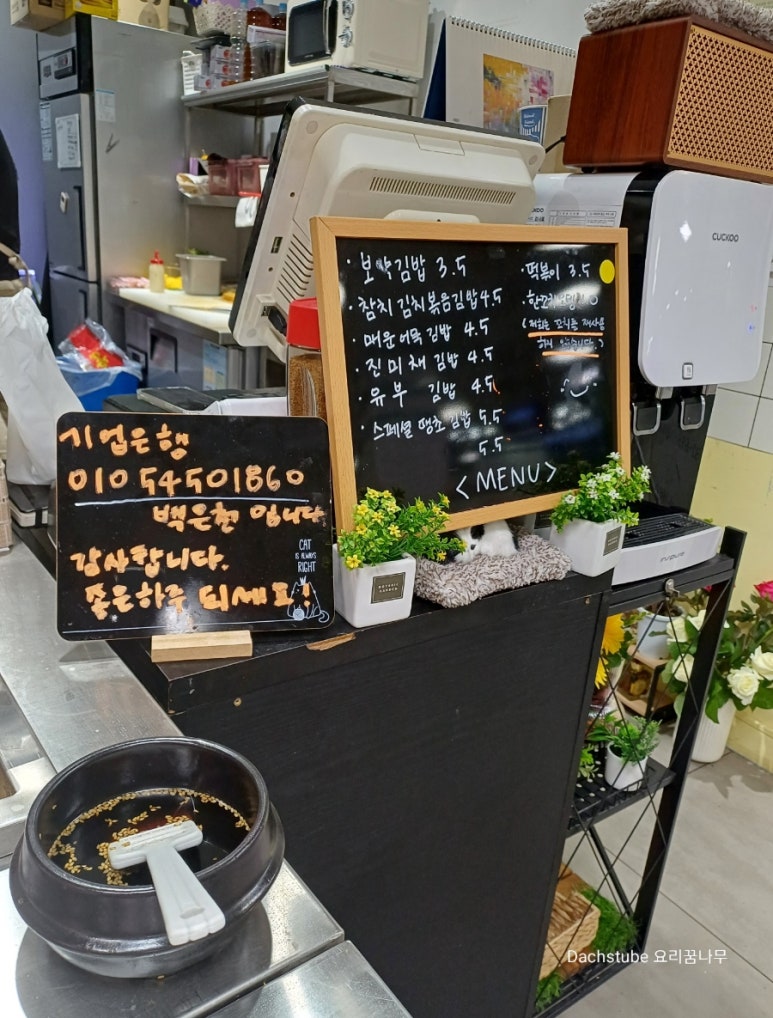 CUCKOO
· 보약김밥 3.5
· 참치 김치볶음김밥 4.5
· 매운어묵 김밥 4.5
· 진미채 김밥 4.5
· 유부 김밥 4.5
· 스페셜 땡초 김밥 5.5
5.5
· 떡볶이 3.5
(저희는 꼬치를 재사용
하지 않습니다)
<MENU>
기업은행
010 54501860
백은철 입니다
감사합니다.
좋은하루 되세요!
CAT
IS ALWAYS
RIGHT
BOTANIC
GARDEN
Dachstube 요리꿈나무